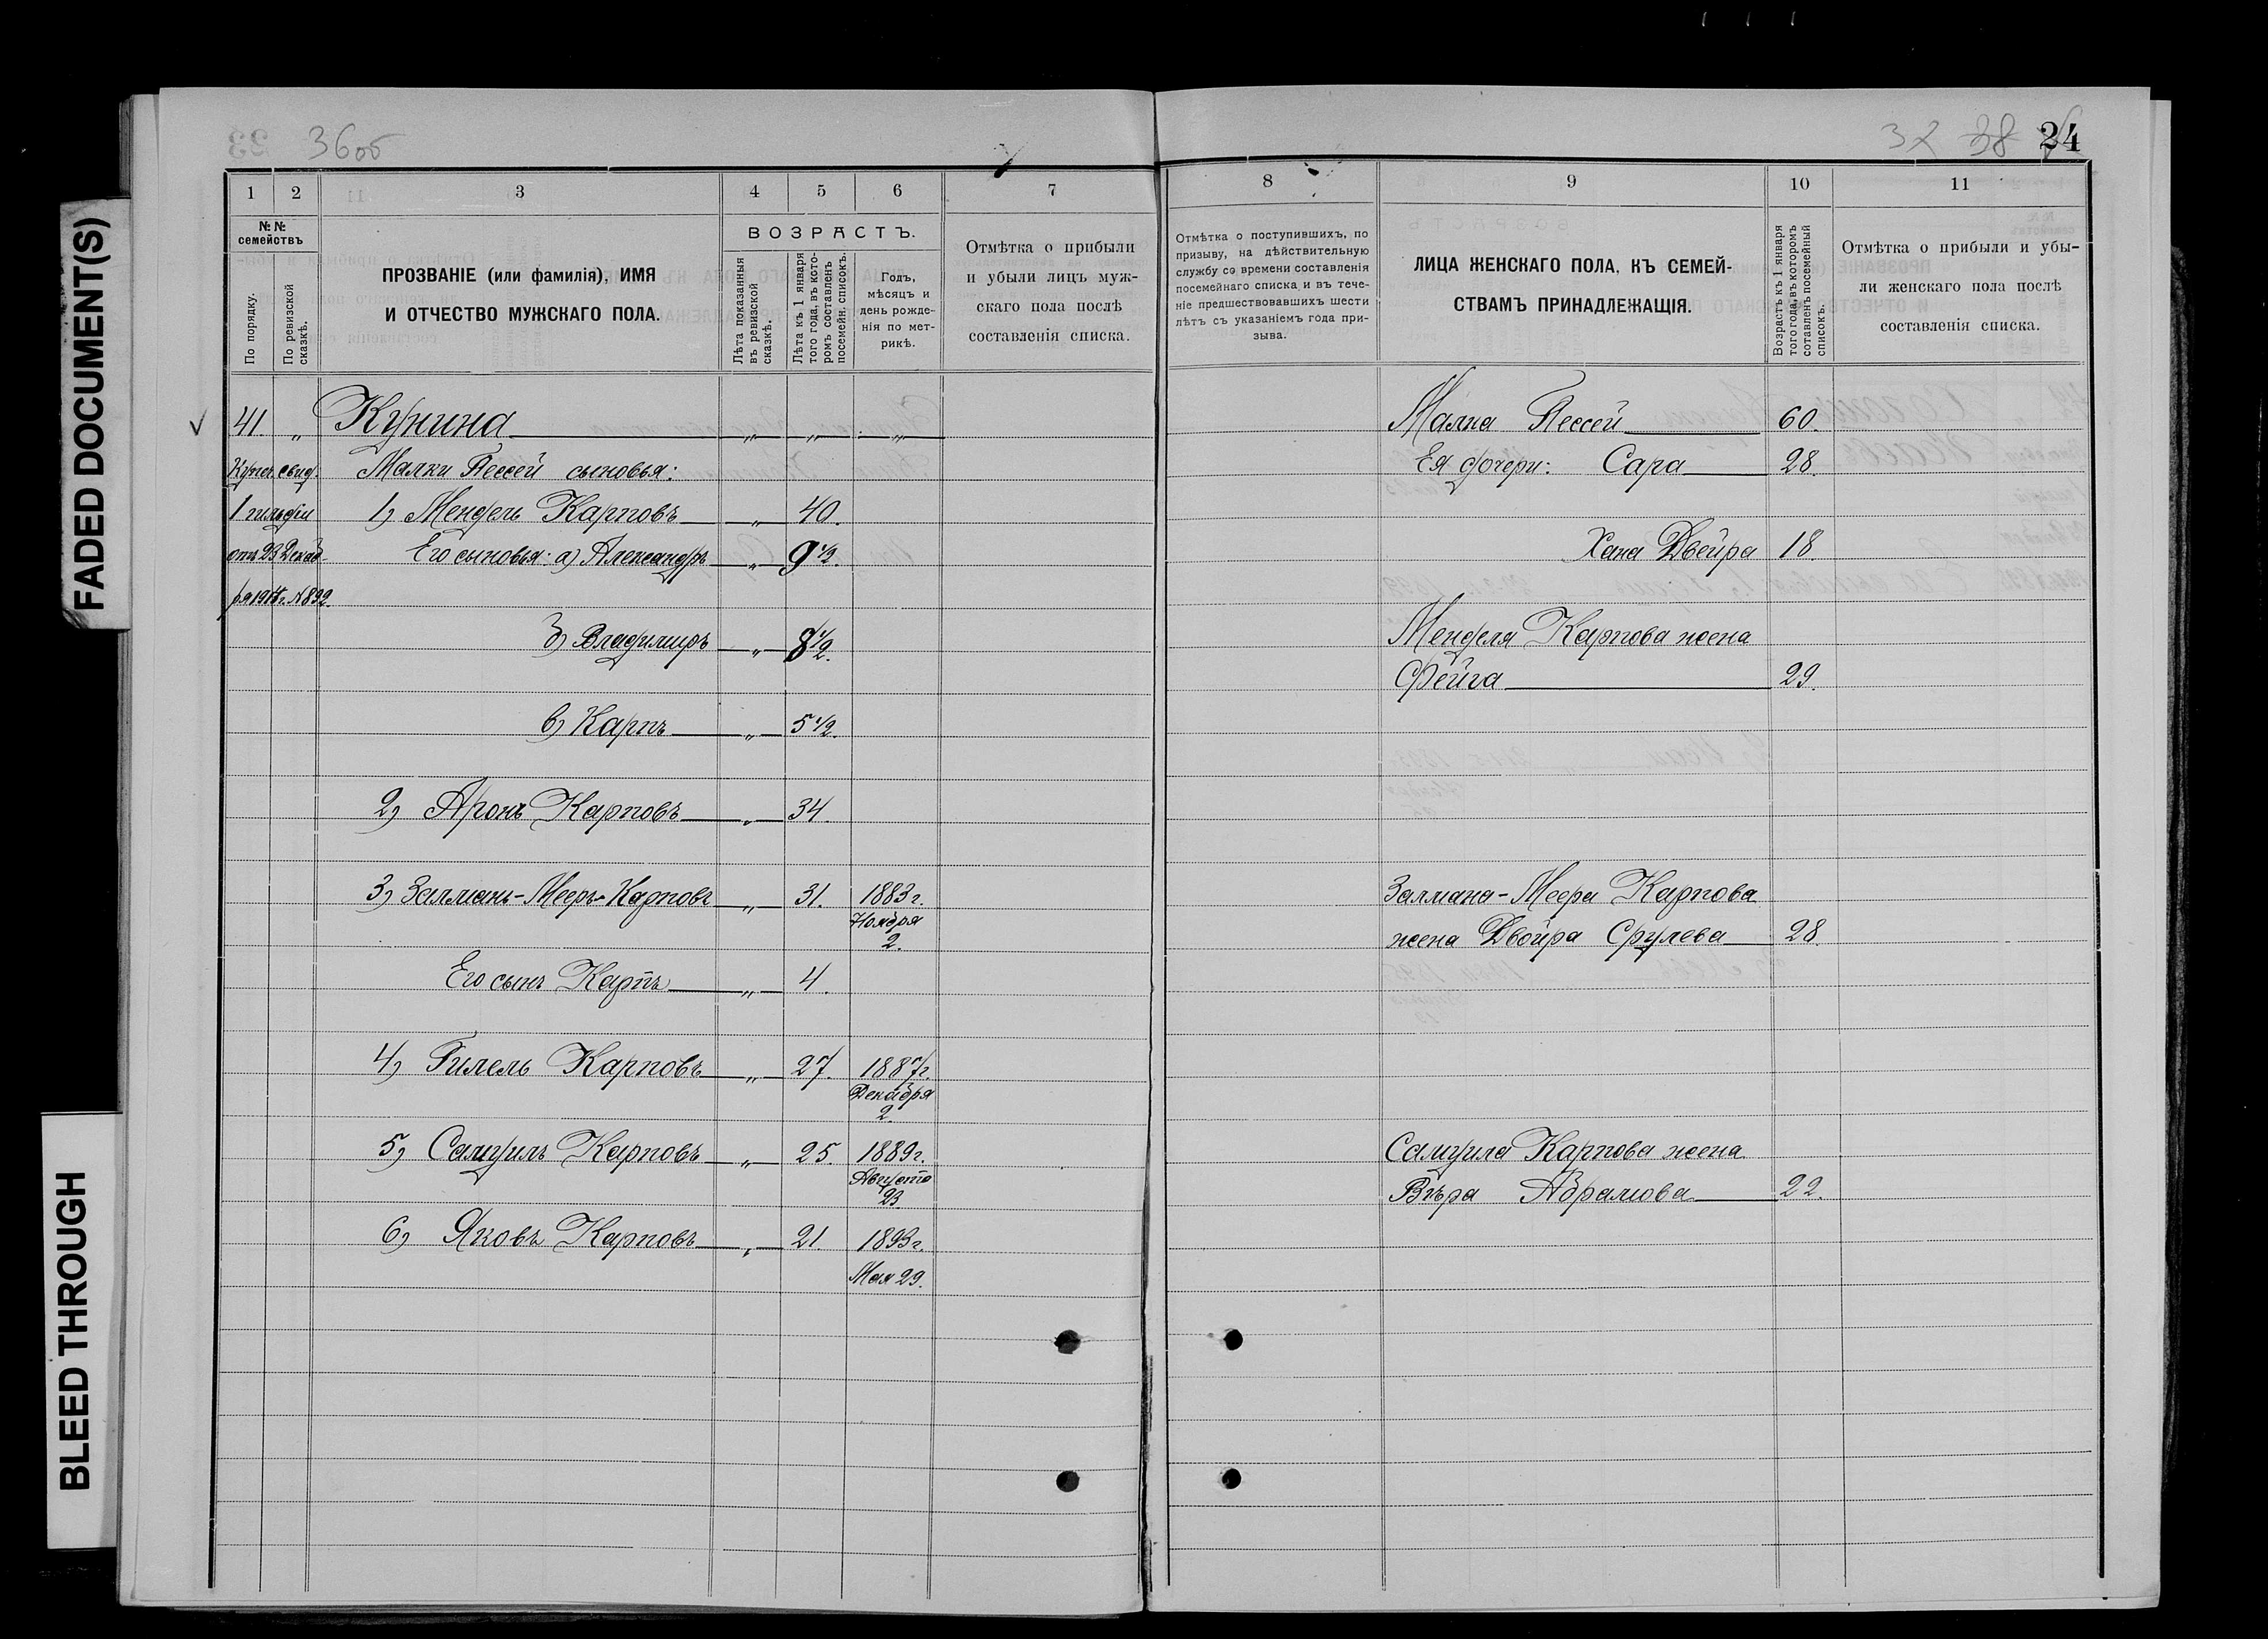 FADED DOCUMENT(S)
BLEED THROUGH
36об
38 24
1 2 3 4 5 6 7
№№ семействъ
По порядку.
По ревизской сказкѣ.
ПРОЗВАНІЕ (или фамилія), ИМЯ
И ОТЧЕСТВО МУЖСКАГО ПОЛА.
ВОЗРАСТЪ.
Лѣта показанныя въ ревизской сказкѣ.
Лѣта къ 1 января того года, въ которомъ составленъ посемейн. списокъ.
Годъ,
мѣсяцъ и
день рожде-
нія по мет-
рикѣ.
Отмѣтка о прибыли
и убыли лицъ муж-
скаго пола послѣ
составленія списка.
8 9 10 11
Отмѣтка о поступившихъ, по
призыву, на дѣйствительную
службу со времени составленія
посемейнаго списка и въ тече-
ніе предшествовавшихъ шести
лѣтъ съ указаніемъ года при-
зыва.
ЛИЦА ЖЕНСКАГО ПОЛА, КЪ СЕМЕЙ-
СТВАМЪ ПРИНАДЛЕЖАЩІЯ.
Возрастъ къ 1 января
того года, въ которомъ
сотавленъ посемейный
списокъ.
Отмѣтка о прибыли и убы-
ли женскаго пола послѣ
составленія списка.
41. „ Кунина „ „ „
Купеч. свид.
1 гильдіи
отъ 23 Декаб-
ря г. №892.
Малки Пессей сыновья:
1) Мендель Карповъ „ 40.
Его сыновья: а) Александръ „ 9 1/2.
б) Владимиръ „ 8 1/2.
в) Карпъ „ 5 1/2.
2) Аронъ Карповъ „ 34.
3) Залманъ-Мееръ Карповъ „ 31. 1883 г.
Ноября
2.
Его сынъ Карпъ „ 4.
4) Гилель Карповъ „ 27. 1887 г.
Декабря
2.
5) Самуилъ Карповъ „ 25. 1889 г.
Августа
23.
6) Яковъ Карповъ „ 21. 1893 г.
Мая 29.
Малка Пессей 60.
Ея дочери: Сара 28.
Хана Двейра 18
Менделя Карпова жена
Фейга 29.
Залмана-Меера Карпова
жена Двойра Срулева 28.
Самуила Карпова жена
Вѣра Абрамова 22.